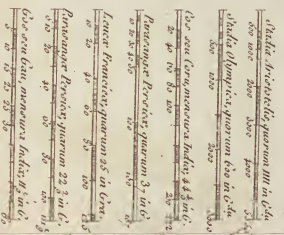 Stadia Aristotelis, quorum 1111 in G.du
500 1000 2000 3000 4000
Stadia Olympica, quorum 600 in G.du
500 1000 2000 3000
Cos seu Coru, mensura Indiæ, in G.
20 40 60 80 100 200
Parasangæ Persicæ, quarum 37 in G.
10 20 30 40 50 100 150
Leucæ quarum 25 in Gra.
10 20 40 60 80 100 125
Parasangæ Persicæ, quarum 22 in G.
5 10 20 40 60 80 100
seu mensura Indiæ, 11 in G.
5 10 15 20 25 30